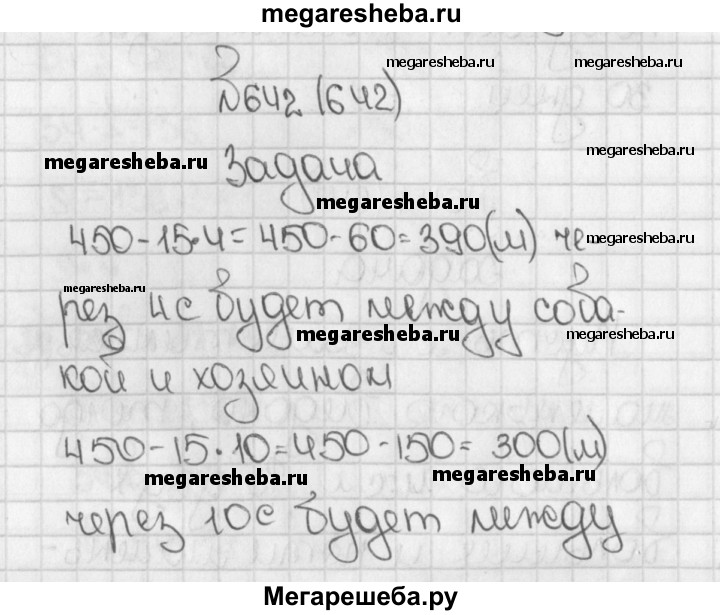 megaresheba.ru
megaresheba.ru
№642 (642)
megaresheba.ru
megaresheba.ru
Задача
megaresheba.ru
450-15·4=450-60=390(м) че-
megaresheba.ru
рез 4с будет между соба-
megaresheba.ru
megaresheba.ru
кой и хозяином
450-15·10=450-150=300(м)
megaresheba.ru
megaresheba.ru
через 10с будет между
Мегарешеба.ру